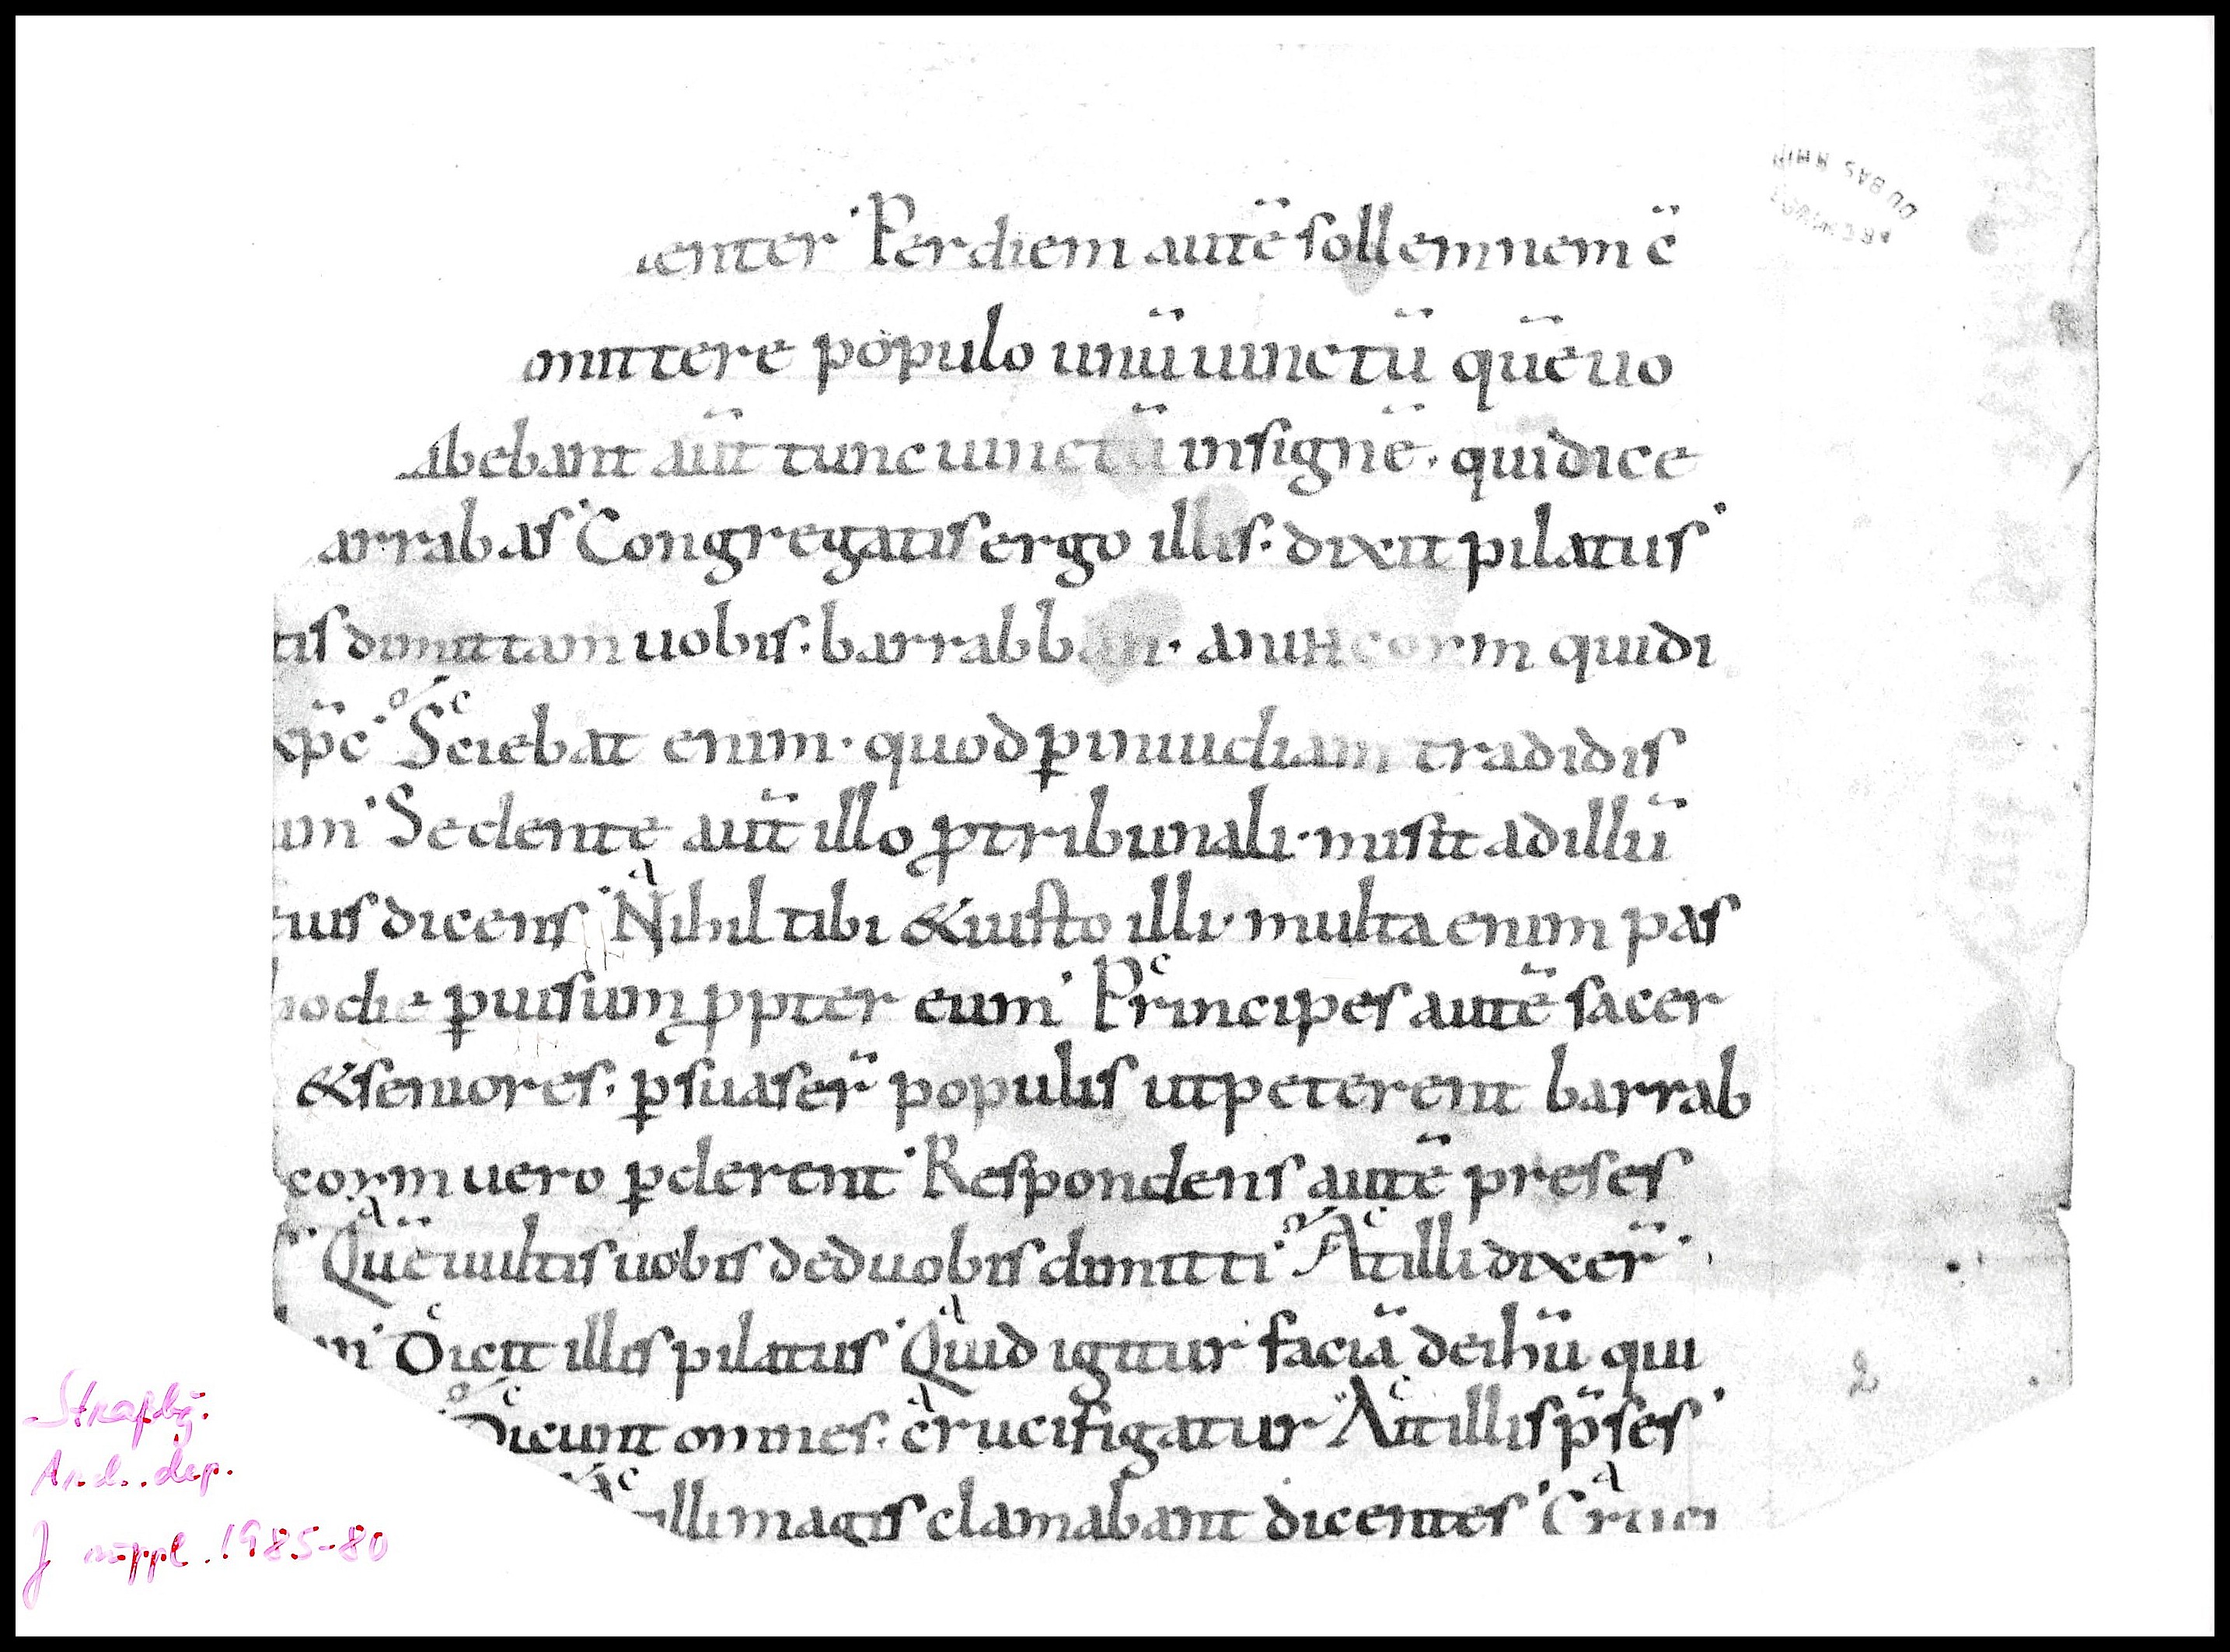 enter· Per diem autē sollemnem c̄
mittere populo unū uinctū quē uo
abebant aūt tunc uinctū insignē· qui dice
arrabas· Congregatis ergo illis· dixit pilatus·
tis dimittam uobis· barrabban· an ihm qui di
xp̄c· Sciebat enim· quod p̱ inuidiam tradidis
um· Sedente aūt illo ꝓ tribunali· misit ad illū
eius dicens· Nihil tibi & iusto illi· multa enim pas
hodie ꝑ uisum ꝓpter eum· Principes autē sacer
& seniores· ꝑsuaser̄ populis ut peterent barrab
uero ꝑderent· Respondens autē preses
Quē uultis uobis de duobis dimitti· At illi dixer̄·
Dicit illis pilatus· Quid igitur faciā de ihū qui
Dicunt omnes· crucifigatur· Ait illis p̄ses·
illi magis clamabant dicentes· Cruci
DU BAS RHIN
2
Straßbg.
Arch. dép.
J suppl. 1985-80